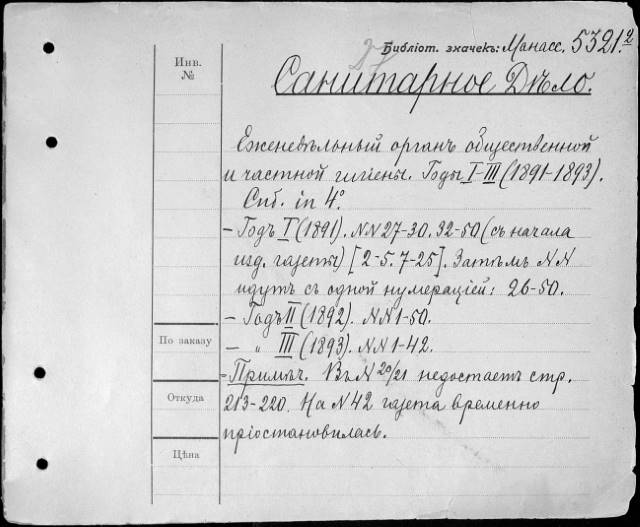 Библіот. значекъ: Манасс. 5321.2
Инв.
№
Санитарное Дѣло.
Еженедѣльный органъ общественной
и частной гигіены. Годы I-III (1891-1893).
Спб. in 4°.
- Годъ I (1891). NN 27-30. 32-50 (съ начала
изд. газеты) [2-5. 7-25]. Затѣмъ NN
идутъ съ одной нумераціей: 26-50.
- Годъ II (1892). NN 1-50.
- " III (1893). NN 1-42.
По заказу
= Примѣч. Въ N 20/21 недостаетъ стр.
Откуда
213-220. На N 42 газета временно
пріостановилась.
Цѣна